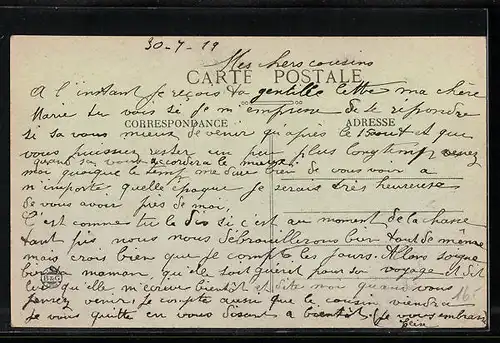 30-7-19
Mes chers cousins
CARTE POSTALE
A l'instant je reçois ta gentille lettre ma chère
Marie tu vois si je m'empresse de te répondre
CORRESPONDANCE
ADRESSE
si sa vous mieux de venir qu'après le 15 aout et que
vous puissiez rester un peu plus longtemps venez
quand sa vous accordera le mieux
moi quoique le temp me dure bien de vous voir a
n'importe quelle époque je serais très heureuse
de vous avoir près de moi,
C'est comme tu le dis si c'est au moment de la chasse
tant pis nous nous débrouillerons bien tout de même
mais crois bien que je compte les jours. Allons soigne
bien maman, qu'elle soit guérit pour son voyage et dit
B&G
lui qu'elle m'écrive bientôt et dite moi quand vous
pensez venir, je compte aussi que le cousin viendra
165
Je vous quitte en vous disant a bientôt. (Je vous embrasse